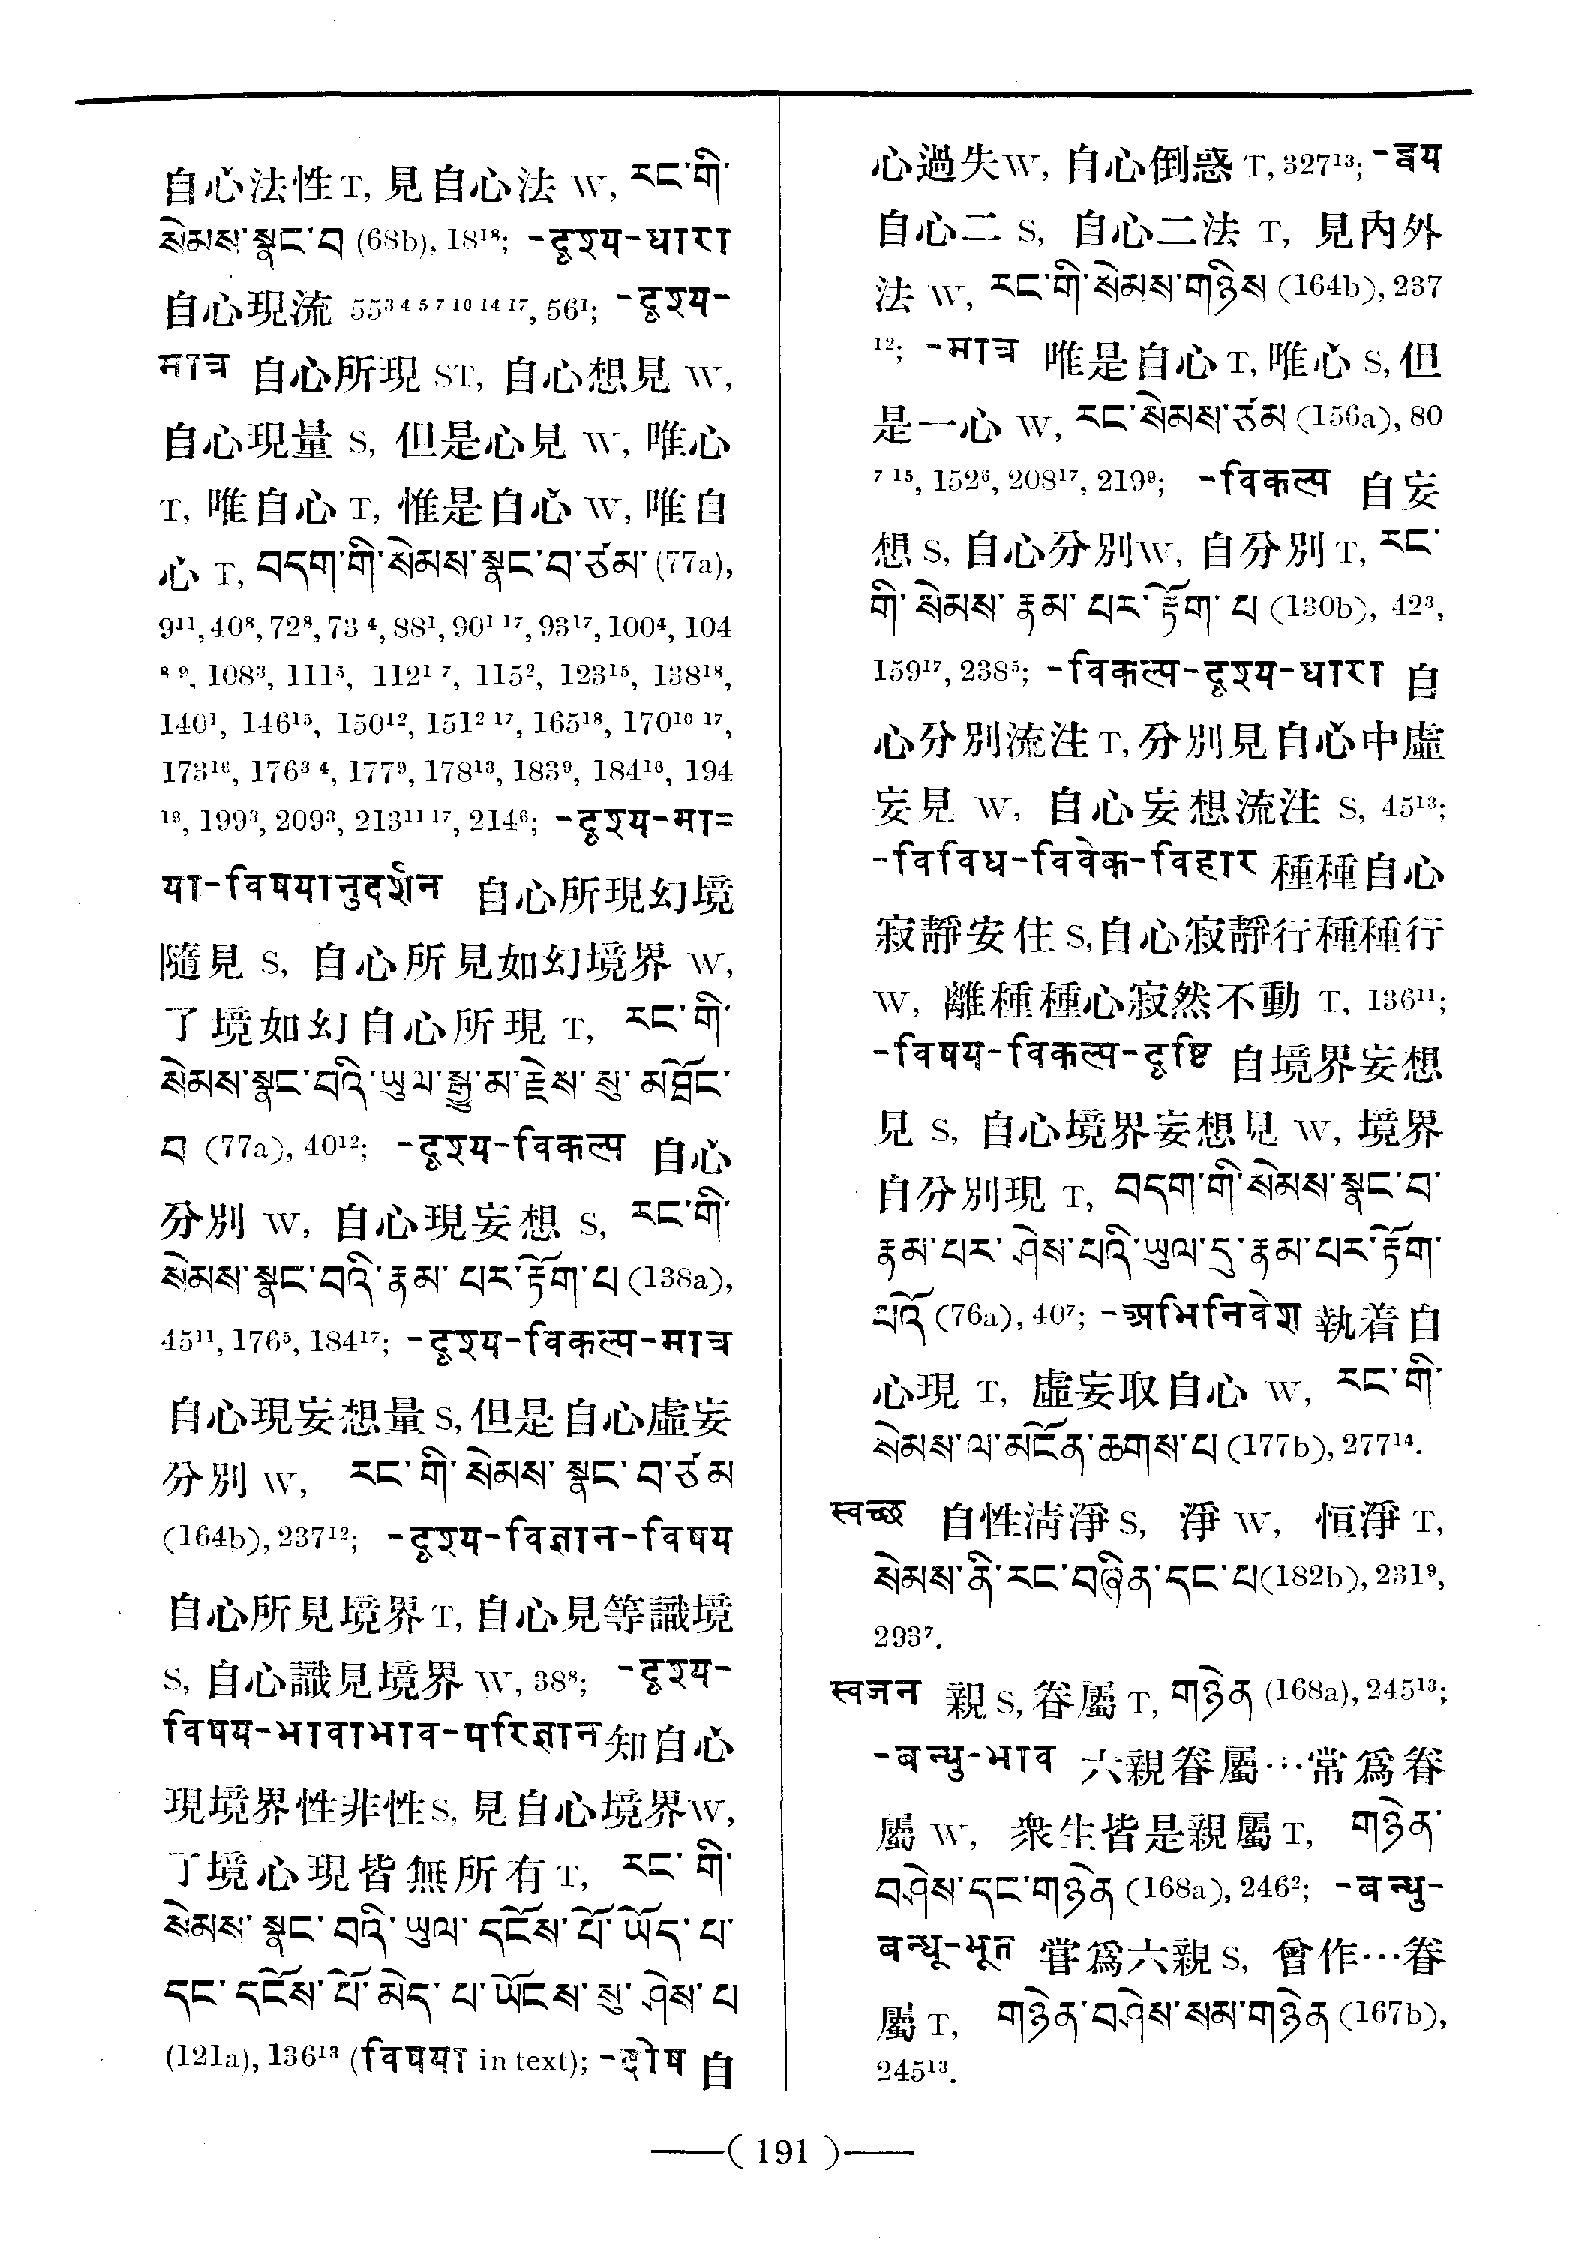 自心法性T, 見自心法 W, རང་གི་
སེམས་སྣང་བ (68b), 18¹⁸; -दृश्य-धारा
自心現流 55³ ⁴ ⁵ ⁷ ¹⁰ ¹⁴ ¹⁷, 56¹; -दृश्य-
मात्र 自心所現 ST, 自心想見 W,
自心現量 S, 但是心見 W, 唯心
T, 唯自心 T, 惟是自心 W, 唯自
心 T, བདག་གི་སེམས་སྣང་བ་ཙམ་ (77a),
9¹¹, 40⁸, 72⁸, 73 ⁴, 88¹, 90¹ ¹⁷, 93¹⁷, 100⁴, 104
⁸ ⁹, 108³, 111⁵, 112¹ ⁷, 115², 123¹⁵, 138¹⁸,
140¹, 146¹⁵, 150¹², 151² ¹⁷, 165¹⁸, 170¹⁰ ¹⁷,
173¹⁶, 176³ ⁴, 177⁹, 178¹³, 183⁹, 184¹⁶, 194
¹⁸, 199³, 209³, 213¹¹ ¹⁷, 214⁶; -दृश्य-मा=
या-विषयानुदर्शन 自心所現幻境
隨見 S, 自心所見如幻境界 W,
了境如幻自心所現 T, རང་གི་
སེམས་སྣང་བའི་ཡུལ་སྒྱུ་མ་རྗེས་སུ་མཐོང་
བ (77a), 40¹²; -दृश्य-विकल्प 自心
分別 W, 自心現妄想 S, རང་གི་
སེམས་སྣང་བའི་རྣམ་པར་རྟོག་པ (138a),
45¹¹, 176⁵, 184¹⁷; -दृश्य-विकल्प-मात्र
自心現妄想量 S, 但是自心虛妄
分別 W, རང་གི་སེམས་སྣང་བ་ཙམ
(164b), 237¹²; -दृश्य-विज्ञान-विषय
自心所見境界 T, 自心見等識境
S, 自心識見境界 W, 38⁸; -दृश्य-
विषय-भावाभाव-परिज्ञान 知自心
現境界性非性S, 見自心境界W,
了境心現皆無所有 T, རང་གི་
སེམས་སྣང་བའི་ཡུལ་དངོས་པོ་ཡོད་པ་
དང་དངོས་པོ་མེད་པ་ཡོངས་སུ་ཤེས་པ
(121a), 136¹³ (विषया in text); -दोष 自
心過失W, 自心倒惑 T, 327¹³; -द्वय
自心二 S, 自心二法 T, 見內外
法 W, རང་གི་སེམས་གཉིས (164b), 237
¹²; -मात्र 唯是自心 T, 唯心 S, 但
是一心 W, རང་སེམས་ཙམ (156a), 80
⁷ ¹⁵, 152⁶, 208¹⁷, 219⁹; -विकल्प 自妄
想 S, 自心分別W, 自分別 T, རང་
གི་སེམས་རྣམ་པར་རྟོག་པ (130b), 42³,
159¹⁷, 238⁵; -विकल्प-दृश्य-धारा 自
心分別流注 T, 分別見自心中虛
妄見 W, 自心妄想流注 S, 45¹³;
-विविध-विवेक-विहार 種種自心
寂靜安住 S, 自心寂靜行種種行
W, 離種種心寂然不動 T, 136¹¹;
-विषय-विकल्प-दृष्टि 自境界妄想
見 S, 自心境界妄想見 W, 境界
自分別現 T, བདག་གི་སེམས་སྣང་བ་
རྣམ་པར་ཤེས་པའི་ཡུལ་དུ་རྣམ་པར་རྟོག་
པའོ (76a), 40⁷; -अभिनिवेश 執着自
心現 T, 虛妄取自心 W, རང་གི་
སེམས་ལ་མངོན་ཆགས་པ (177b), 277¹⁴.
स्वच्छ 自性淸淨 S, 淨 W, 恒淨 T,
སེམས་ནི་རང་བཞིན་དང་པ(182b), 231⁹,
293⁷.
स्वजन 親 S, 眷屬 T, གཉེན (168a), 245¹³;
-बन्धु-भाव 六親眷屬…常爲眷
屬 W, 衆生皆是親屬 T, གཉེན་
བཤེས་དང་གཉེན (168a), 246²; -बन्धु-
बन्धू-भूत 嘗爲六親 S, 曾作…眷
屬 T, གཉེན་བཤེས་སམ་གཉེན (167b),
245¹³.
( 191 )